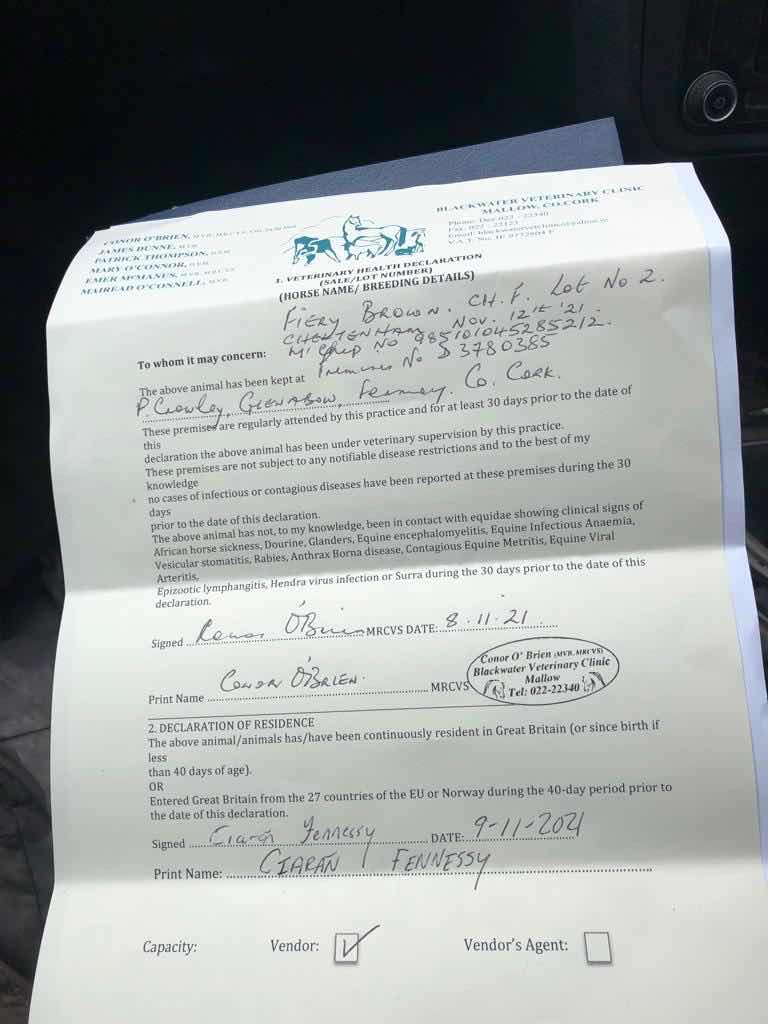 CONOR O'BRIEN, MVB. MRCVS.
JAMES DUNNE, MVB
PATRICK THOMPSON, MVB
MARY O'CONNOR, MVB
EMER McMANUS, MVB. MRCVS
MAIREAD O'CONNELL, MVB
BLACKWATER VETERINARY CLINIC
MALLOW, CO.CORK
Phone: Day 022 - 22340
Fax: 022 - 22123
V.A.T. No. IE
1. VETERINARY HEALTH DECLARATION
(SALE/LOT NUMBER)
(HORSE NAME/ BREEDING DETAILS)
FIERY BROWN. CH. F. Lot No 2.
CHELTENHAM NOV. 12TE '21
To whom it may concern: M'Chip No 985101045285212.
Premises No D3780385
The above animal has been kept at
P. Crowley, GLENABOW, Fermoy. Co. Cork.
These premises are regularly attended by this practice and for at least 30 days prior to the date of
this
declaration the above animal has been under veterinary supervision by this practice.
These premises are not subject to any notifiable disease restrictions and to the best of my
knowledge
no cases of infectious or contagious diseases have been reported at these premises during the 30
days
prior to the date of this declaration.
The above animal has not, to my knowledge, been in contact with equidae showing clinical signs of
African horse sickness, Dourine, Glanders, Equine encephalomyelitis, Equine Infectious Anaemia,
Vesicular stomatitis, Rabies, Anthrax Borna disease, Contagious Equine Metritis, Equine Viral
Arteritis,
Epizootic lymphangitis, Hendra virus infection or Surra during the 30 days prior to the date of this
declaration.
Signed Conor O'Brien MRCVS DATE: 8.11.21
Print Name CONOR O'BRIEN. MRCVS
Conor O' Brien (MVB, MRCVS)
Blackwater Veterinary Clinic
Mallow
Tel: 022-22340
2. DECLARATION OF RESIDENCE
The above animal/animals has/have been continuously resident in Great Britain (or since birth if
less
than 40 days of age).
OR
Entered Great Britain from the 27 countries of the EU or Norway during the 40-day period prior to
the date of this declaration.
Signed Ciarán Fennessy DATE: 9-11-2021
Print Name: CIARÁN FENNESSY
Capacity: Vendor: ✓ Vendor's Agent: